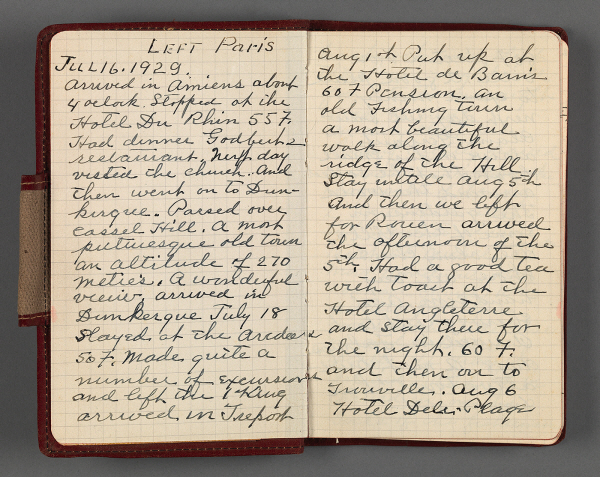 LEFT Paris
JUL 16. 1929.
arrived in Amiens about
4 oclock. Stopped at the
Hotel Du Rhin 55 F.
Had dinner Godbert
restaurant. Next day
visted the church. And
then went on to Dun-
kirque. Parsed over
Cassel Hill. A most
puturesque old town
an altitude of 270
meties. A wonderful
view. arrived in
Dunkerque July 18
Stayed at the
50 F. Made quite a
number of excursions
and left the 1st Aug
arrived in Treport
Aug 1st Put up at
the Hotel de Bains
60 F Pension. an
old Fishing town
a most beautiful
walk along the
ridge of the Hill
Stay intile Aug 5th
And then we left
for Rouen arrived
the afternoon of the
5th. Had a good tea
with toast at the
Hotel Angleterre
and stay there for
the night. 60 F.
and then on to
Trouville. Aug 6
Hotel Plage